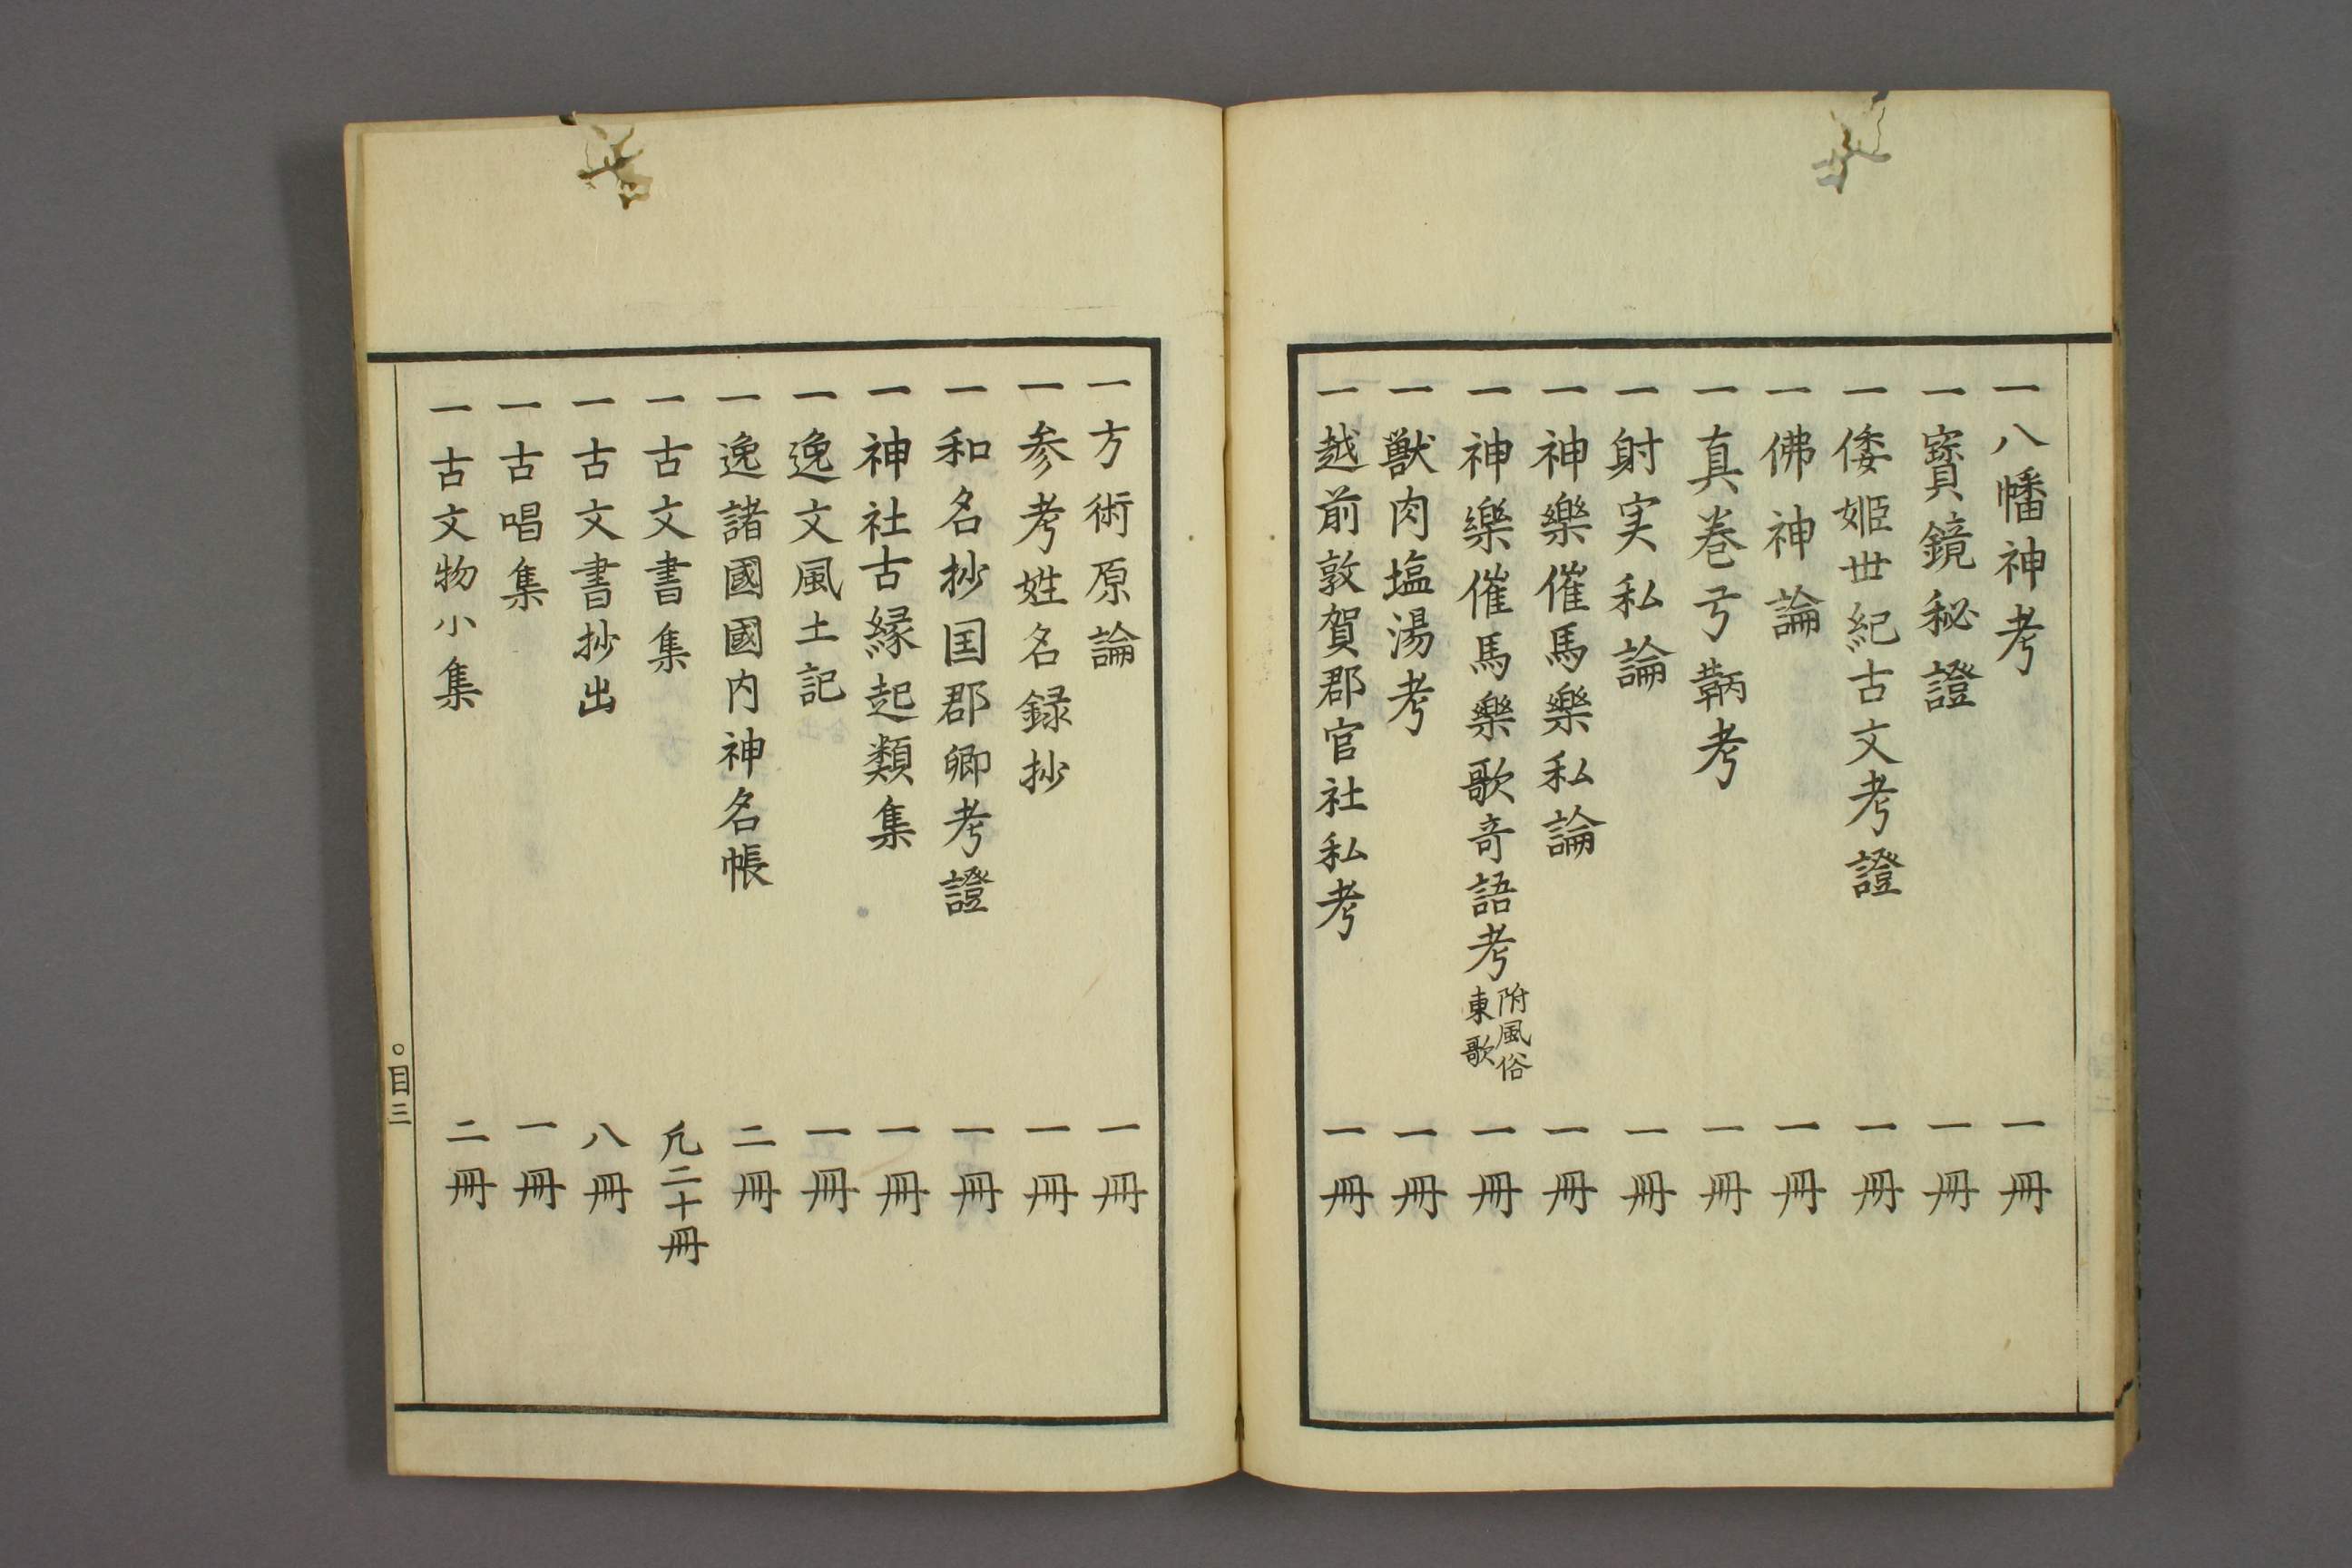 一八幡神考 一冊
一寳鏡秘證 一冊
一倭姫世紀古文考證 一冊
一佛神論 一冊
一真巻弓鞆考 一冊
一射実私論 一冊
一神樂催馬樂私論 一冊
一神樂催馬樂歌奇語考 附風俗東歌 一冊
一獣肉塩湯考 一冊
一越前敦賀郡官社私考 一冊
一方術原論 一冊
一参考姓名録抄 一冊
一和名抄国郡郷考證 一冊
一神社古縁起類集 一冊
一逸文風土記 一冊
一逸諸國國内神名帳 二冊
一古文書集 凡二十冊
一古文書抄出 八冊
一古唱集 一冊
一古文物小集 二冊
○目三